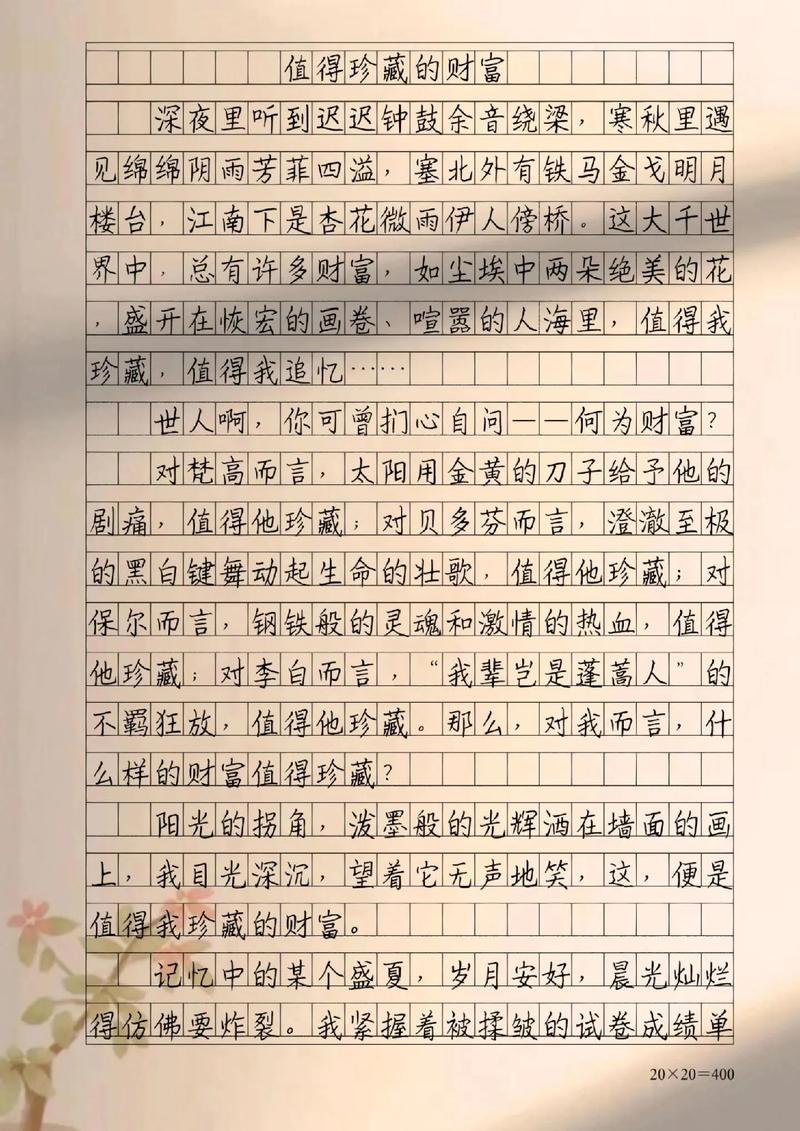 值得珍藏的财富
深夜里听到迟迟钟鼓余音绕梁，寒秋里遇
见绵绵阴雨芳菲四溢，塞北外有铁马金戈明月
楼台，江南下是杏花微雨伊人傍桥。这大千世
界中，总有许多财富，如尘埃中两朵绝美的花
，盛开在恢宏的画卷、喧嚣的人海里，值得我
珍藏，值得我追忆……
世人啊，你可曾扪心自问——何为财富？
对梵高而言，太阳用金黄的刀子给予他的
剧痛，值得他珍藏；对贝多芬而言，澄澈至极
的黑白键舞动起生命的壮歌，值得他珍藏；对
保尔而言，钢铁般的灵魂和激情的热血，值得
他珍藏；对李白而言，“我辈岂是蓬蒿人”的
不羁狂放，值得他珍藏。那么，对我而言，什
么样的财富值得珍藏？
阳光的拐角，泼墨般的光辉洒在墙面的画
上，我目光深沉，望着它无声地笑，这，便是
值得我珍藏的财富。
记忆中的某个盛夏，岁月安好，晨光灿烂
得仿佛要炸裂。我紧握着被揉皱的试卷成绩单
20×20=400